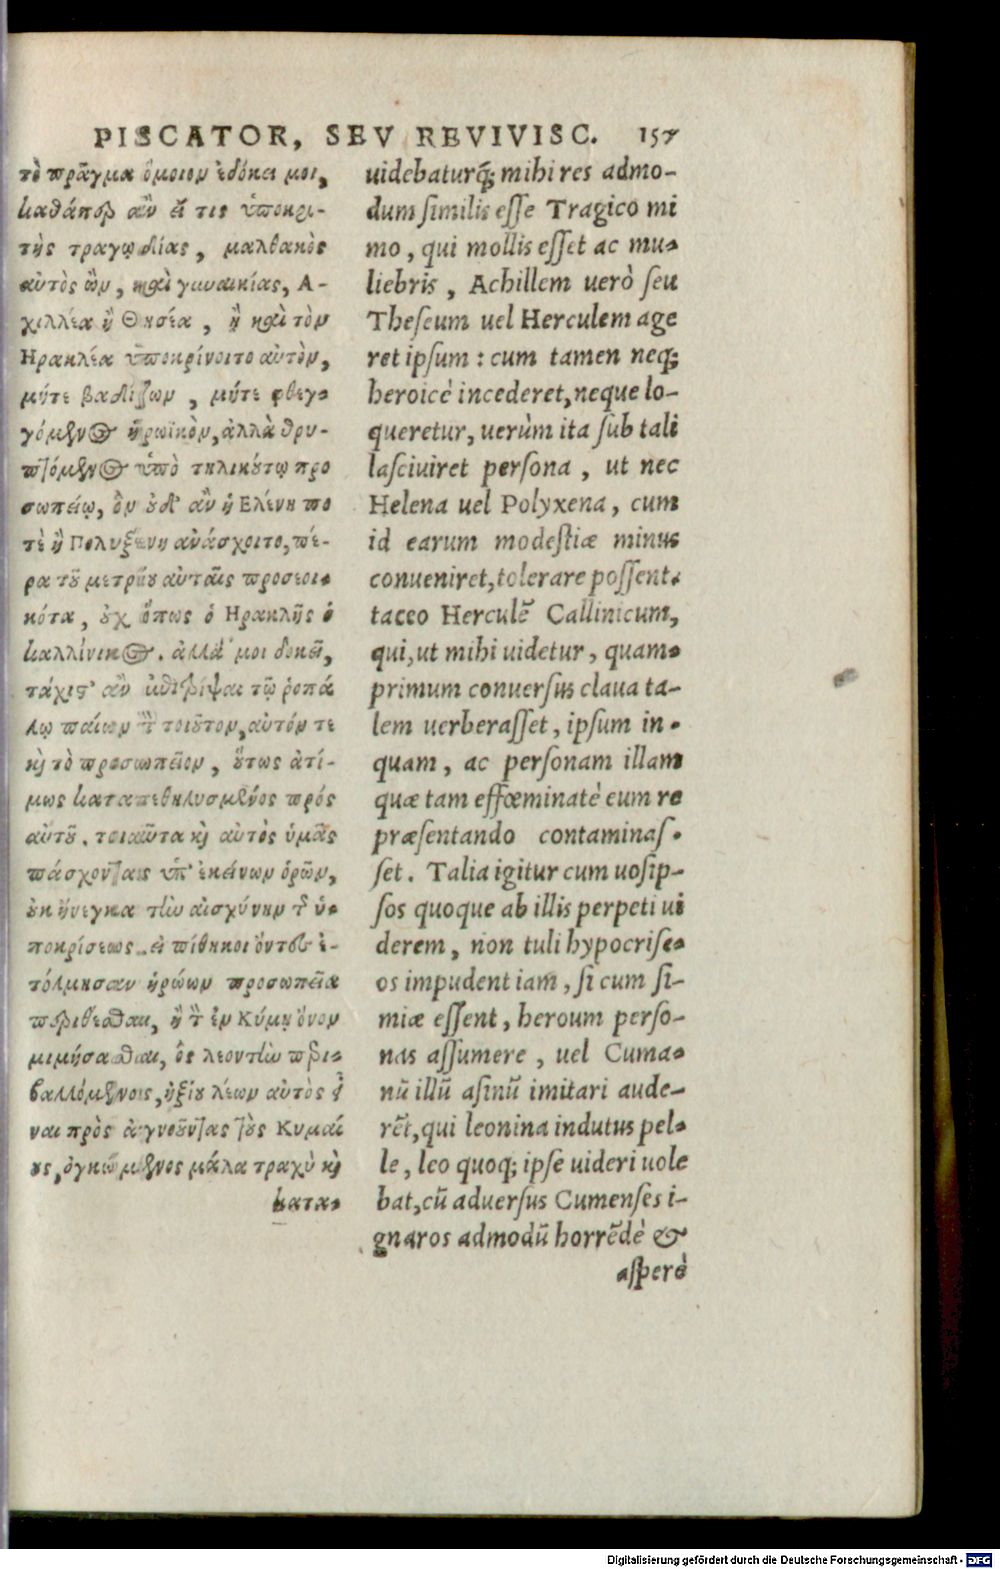 PISCATOR, SEV REVIVISC. 157
τὸ πρᾶγμα ὅμοιον ἐδόκει μοι,
καθάπερ ἂν εἴ τις ὑποκρι-
τὴς τραγῳδίας, μαλθακὸς
αὐτὸς ὢν, καὶ γυναικίας, Α-
χιλλέα ἢ Θησέα, ἢ καὶ τὸν
Ηρακλέα ὑποκρίνοιτο αὐτὸν,
μήτε βαδίζων, μήτε φθεγ-
γόμενος ἡρωϊκὸν, ἀλλὰ θρυ-
πτόμενος ὑπὸ τηλικούτῳ προ
σωπείῳ, ὃν οὐδ' ἂν ἡ Ελένη πο
τὲ ἢ Πολυξένη ἀνάσχοιτο, πέ-
ρα τοῦ μετρίου αὐταῖς προσεοι-
κότα, οὐχ ὅπως ὁ Ηρακλῆς ὁ
καλλίνικος. ἀλλά μοι δοκεῖ,
τάχιστ' ἂν ἐπιστρέψαι τῷ ῥοπά
λῳ παίων τὸν τοιοῦτον, αὐτόν τε
καὶ τὸ προσωπεῖον, οὕτως ἀτί-
μως κατατεθηλυσμένος πρός
αὐτοῦ. τοιαῦτα καὶ αὐτὸς ὑμᾶς
πάσχοντας ὑπ' ἐκείνων ὁρῶν,
οὐκ ἤνεγκα τὴν αἰσχύνην τῆς ὑ-
ποκρίσεως. εἰ πίθηκοι ὄντες ἐ-
τόλμησαν ἡρώων προσωπεῖα
περιθέσθαι, ἢ τὸν ἐν Κύμῃ ὄνον
μιμήσασθαι, ὃς λεοντῆν περι-
βαλλόμενος, ἠξίου λέων αὐτὸς εἶ
ναι πρὸς ἀγνοοῦντας τοὺς Κυμαί
ους, ὀγκώμενος μάλα τραχὺ καὶ
κατα-
uidebaturq; mihi res admo-
dum similis esse Tragico mi
mo, qui mollis esset ac mu-
liebris, Achillem uerò seu
Theseum uel Herculem age
ret ipsum: cum tamen neq;
heroicè incederet, neque lo-
queretur, uerùm ita sub tali
lasciuiret persona, ut nec
Helena uel Polyxena, cum
id earum modestiæ minus
conueniret, tolerare possent.
taceo Herculē Callinicum,
qui, ut mihi uidetur, quam-
primum conuersus claua ta-
lem uerberasset, ipsum in-
quam, ac personam illam
quæ tam effœminatè eum re
præsentando contaminas-
set. Talia igitur cum uosip-
sos quoque ab illis perpeti ui
derem, non tuli hypocrise-
os impudentiam, si cum si-
miæ essent, heroum perso-
nas assumere, uel Cuma-
nū illū asinū imitari aude-
rēt, qui leonina indutus pel-
le, leo quoq; ipse uideri uole
bat, cū aduersus Cumenses i-
gnaros admodū horrēdè &
asperè
Digitalisierung gefördert durch die Deutsche Forschungsgemeinschaft - DFG